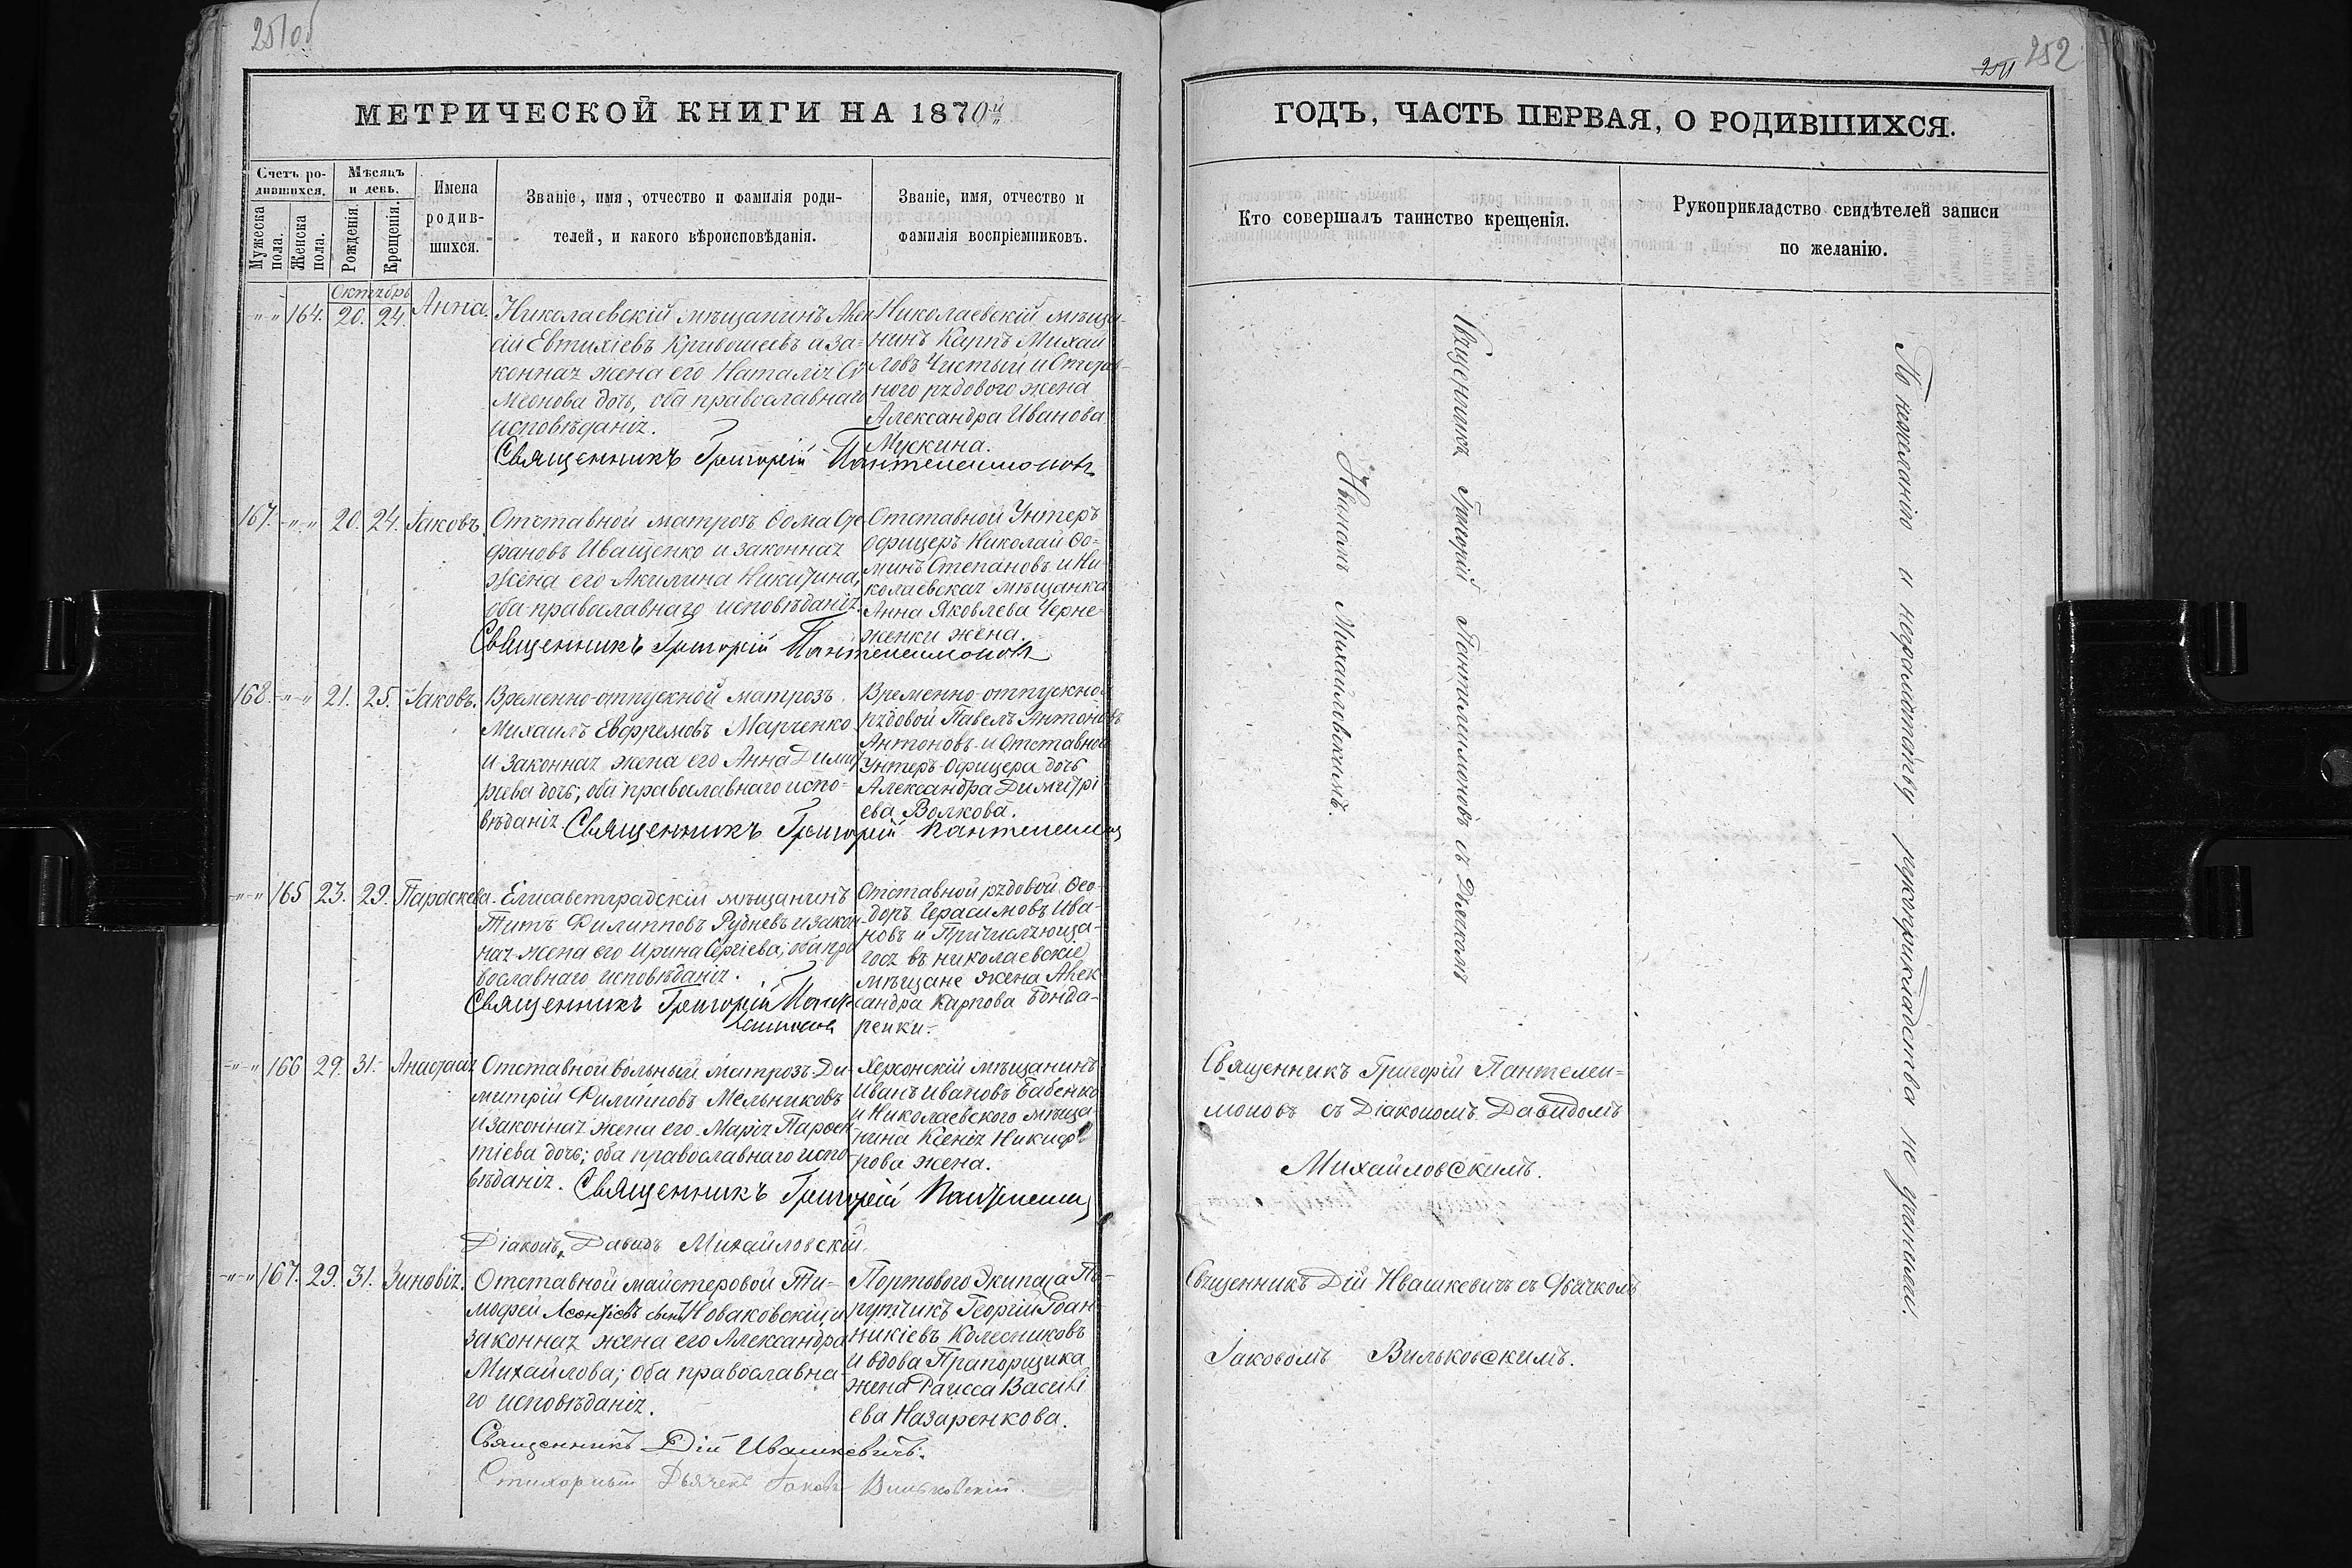 251об
МЕТРИЧЕСКОЙ КНИГИ НА 1870й
Счетъ ро-
дившихся.
Мѣсяцъ
и день.
Имена
родив-
шихся.
Званіе, имя, отчество и фамилія роди-
телей, и какого вѣроисповѣданія.
Званіе, имя, отчество и
фамилія воспріемниковъ.
Мужеска
пола.
Женска
пола.
Рожденія.
Крещенія.
Октябрь
164. 20. 24. Анна.
Николаевскій мѣщанинъ
сій Евтихіевъ Кривошеевъ и за-
конная жена его Наталія Си
меонова дочь, оба православнаго
исповѣданія.
Священникъ Григорій Пантелеимоновъ
Николаевскій мѣща-
нинъ Карпъ Михай
ловъ Чистый и Отстав-
ного рядового жена
Александра Иванова
Мускина.
167. 20. 24. Іаковъ.
Отставной матрозъ Ѳома Сте
фановъ Иващенко и законная
жена его Акилина Никитина,
оба православнаго исповѣданія.
Священникъ Григорій Пантелеимоновъ
Отставной Унтеръ
Офицеръ Николай Ѳо-
минъ Степановъ и Ни
колаевская мѣщанка
Анна Яковлева Черне-
женки жена.
168. 21. 25. Іаковъ.
Временно-отпускной матрозъ
Михаилъ Евфремовъ Марченко
и законная жена его Анна Димит
ріева дочь; оба православнаго испо-
вѣданія. Священникъ Григорій
Временно-отпускной
рядовой Павелъ Антоновъ
Антоновъ и Отставной
Унтеръ-Офицера дочь
Александра Димитрі
ева Волкова.
165 23. 29. Параскева.
Елисаветградскій мѣщанинъ
Титъ Филипповъ Рудневъ и закон
ная жена его Ирина Сергіева; оба пра
вославнаго исповѣданія.
Священникъ Григорій Панте
леимоновъ
Отставной рядовой Ѳео-
доръ Герасимовъ Ива-
новъ и Причисляюща-
гося въ николаевскіе
мѣщане жена Алек
сандра Карпова Бонда-
ренки.
166 29. 31. Анастасія
Отставной вольный матрозъ Ди-
митрій Филипповъ Мельниковъ
и законная жена его Марія Парѳен
тіева дочь; оба православнаго испо-
вѣданія. Священникъ Григорій
Діаконъ Давидъ Михайловскій.
Херсонскій мѣщанинъ
Иванъ Ивановъ Бабенко
и Николаевского мѣща-
нина Ксенія Никифо
рова жена.
167. 29. 31. Зиновія.
Отставной майстеровой Ти-
мофей Леонтіевъ сынъ Новаковскій и
законная жена его Александра
Михайлова; оба православна-
го исповѣданія.
Священникъ Дій Ивашкевичъ.
Стихарный Дьячекъ Іаковъ Вильковскій.
Портового Экипажа По-
рутчикъ Георгій Іоан-
никіевъ Колесниковъ
и вдова Прапорщика
жена Раисса Васи&#108;і
ева Назаренкова.
211 252
ГОДЪ, ЧАСТЬ ПЕРВАЯ, О РОДИВШИХСЯ.
Кто совершалъ таинство крещенія.
Рукоприкладство свидѣтелей записи
по желанію.
Священникъ Григорій Пантелеимоновъ съ Дьячкомъ
Михайловскимъ.
Священникъ Григорій Пантелеи-
моновъ съ Діакономъ Давидомъ
Михайловскимъ.
Священникъ Дій Ивашкевичъ съ Дьячкомъ
Іаковомъ Вильковскимъ.
По нежеланію и неграмотству рукоприкладства не учинено.